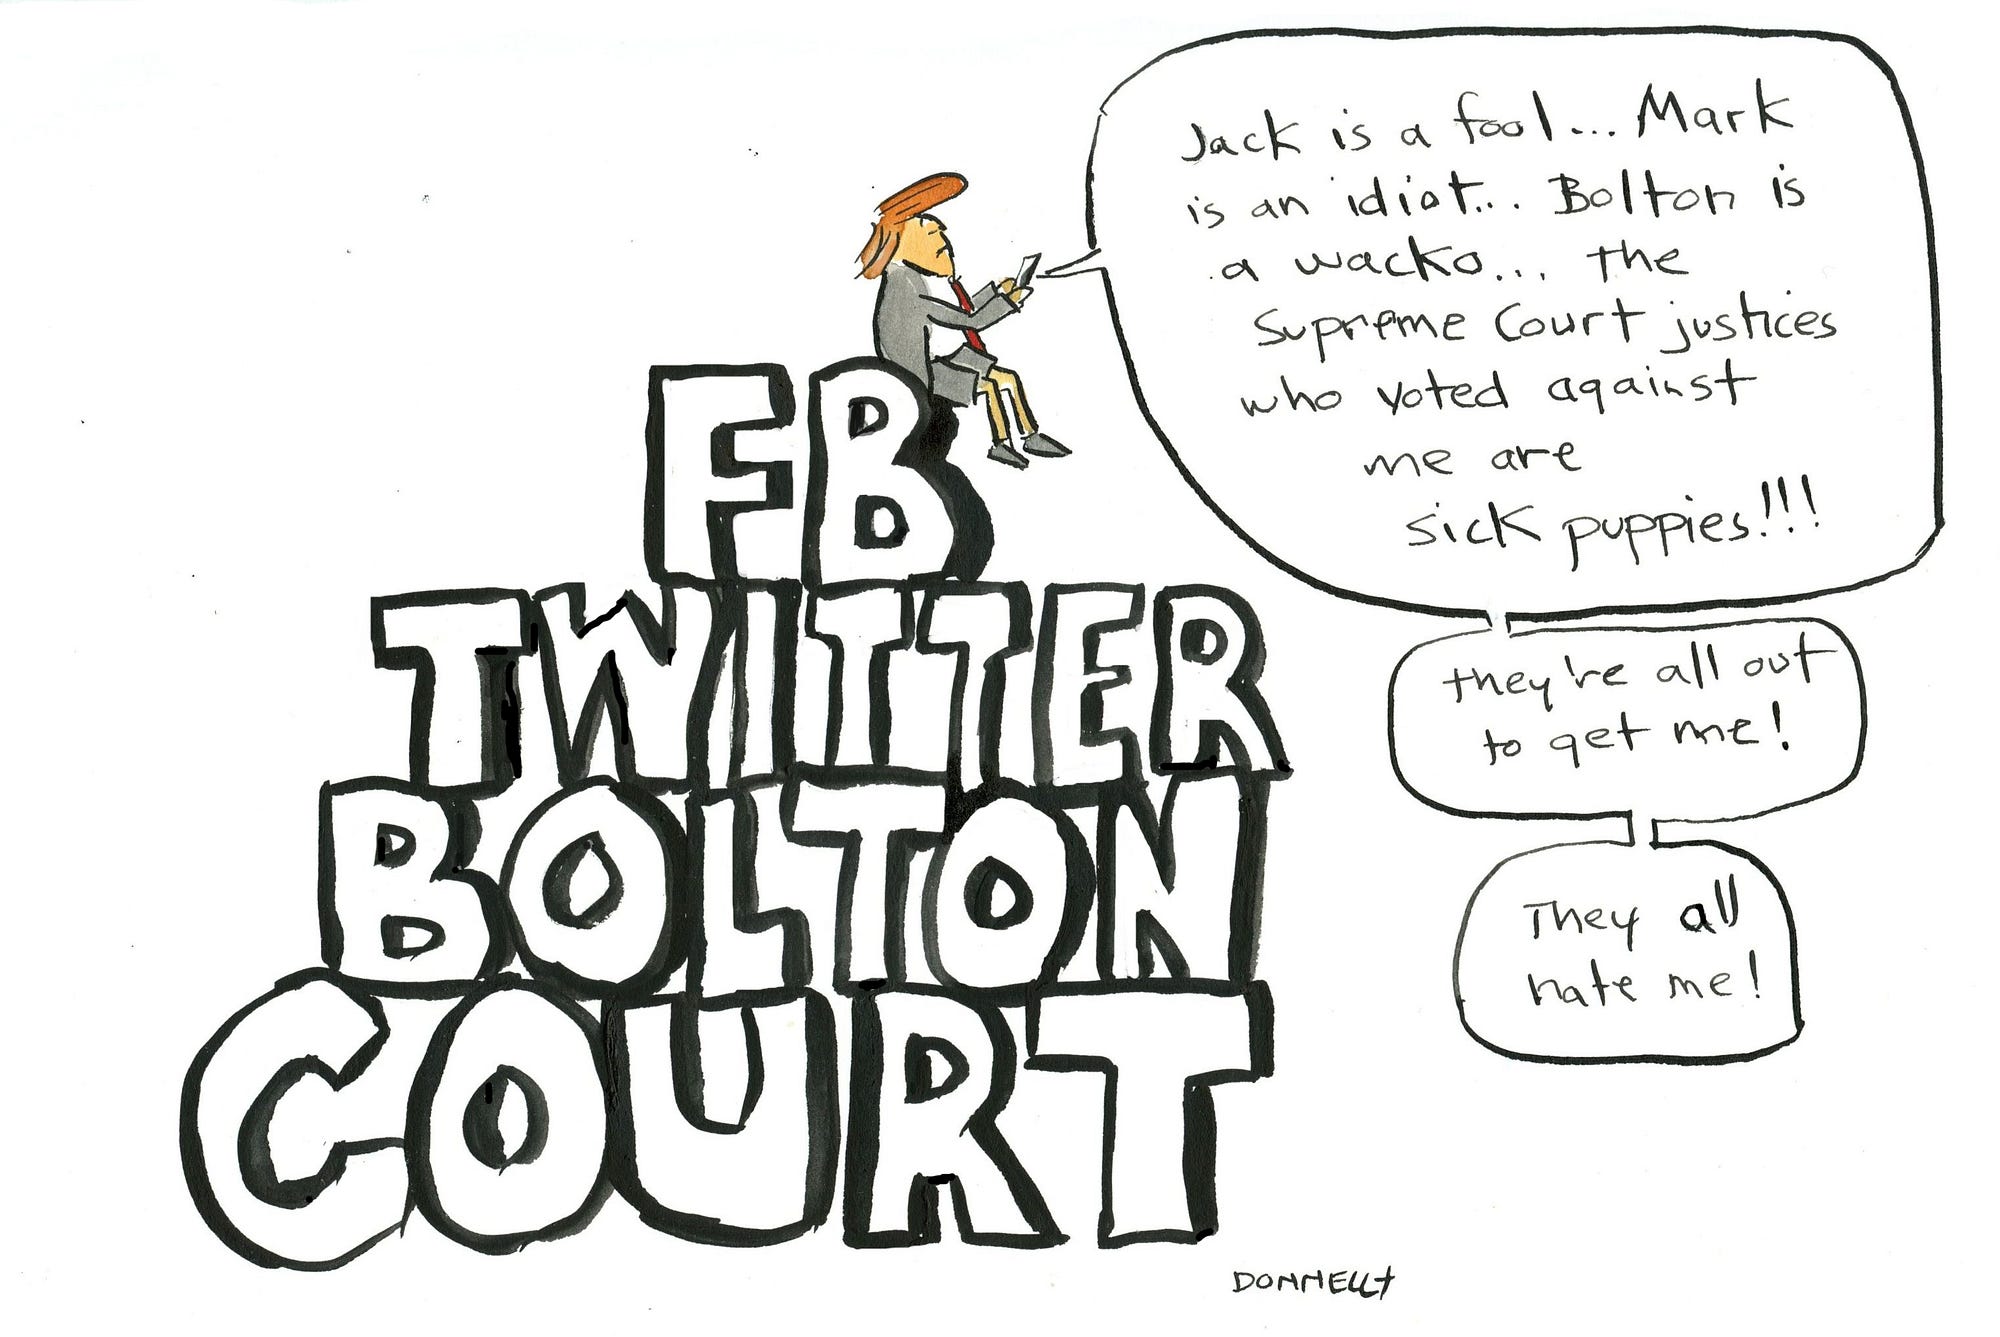 Jack is a fool... Mark
is an idiot... Bolton is
a wacko... the
Supreme Court justices
who voted against
me are
sick puppies!!!
they're all out
to get me!
They all
hate me!
FB
TWITTER
BOLTON
COURT
DONNELLY